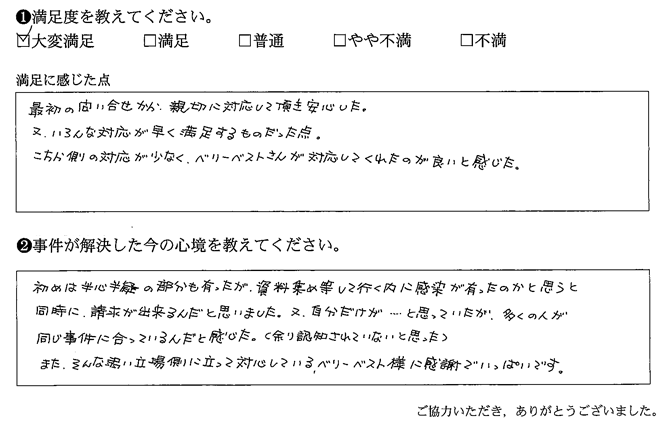 ❶満足度を教えてください。
☑大変満足 □満足 □普通 □やや不満 □不満
満足に感じた点
最初の問い合せから、親切に対応して頂き安心した。
又、いろんな対応が早く満足するものだった点。
こちら側の対応が少なく、ベリーベストさんが対応してくれたのが良いと感じた。
❷事件が解決した今の心境を教えてください。
初めは半心半疑の部分も有ったが、資料集め等して行く内に感染が有ったのかと思うと
同時に、請求が出来るんだと思いました。又、自分だけが…と思っていたが、多くの人が
同じ事件に合っているんだと感じた。(余り認知されていないと思った)
また、そんな弱い立場側に立って対応している、ベリーベスト様に感謝でいっぱいです。
ご協力いただき，ありがとうございました。